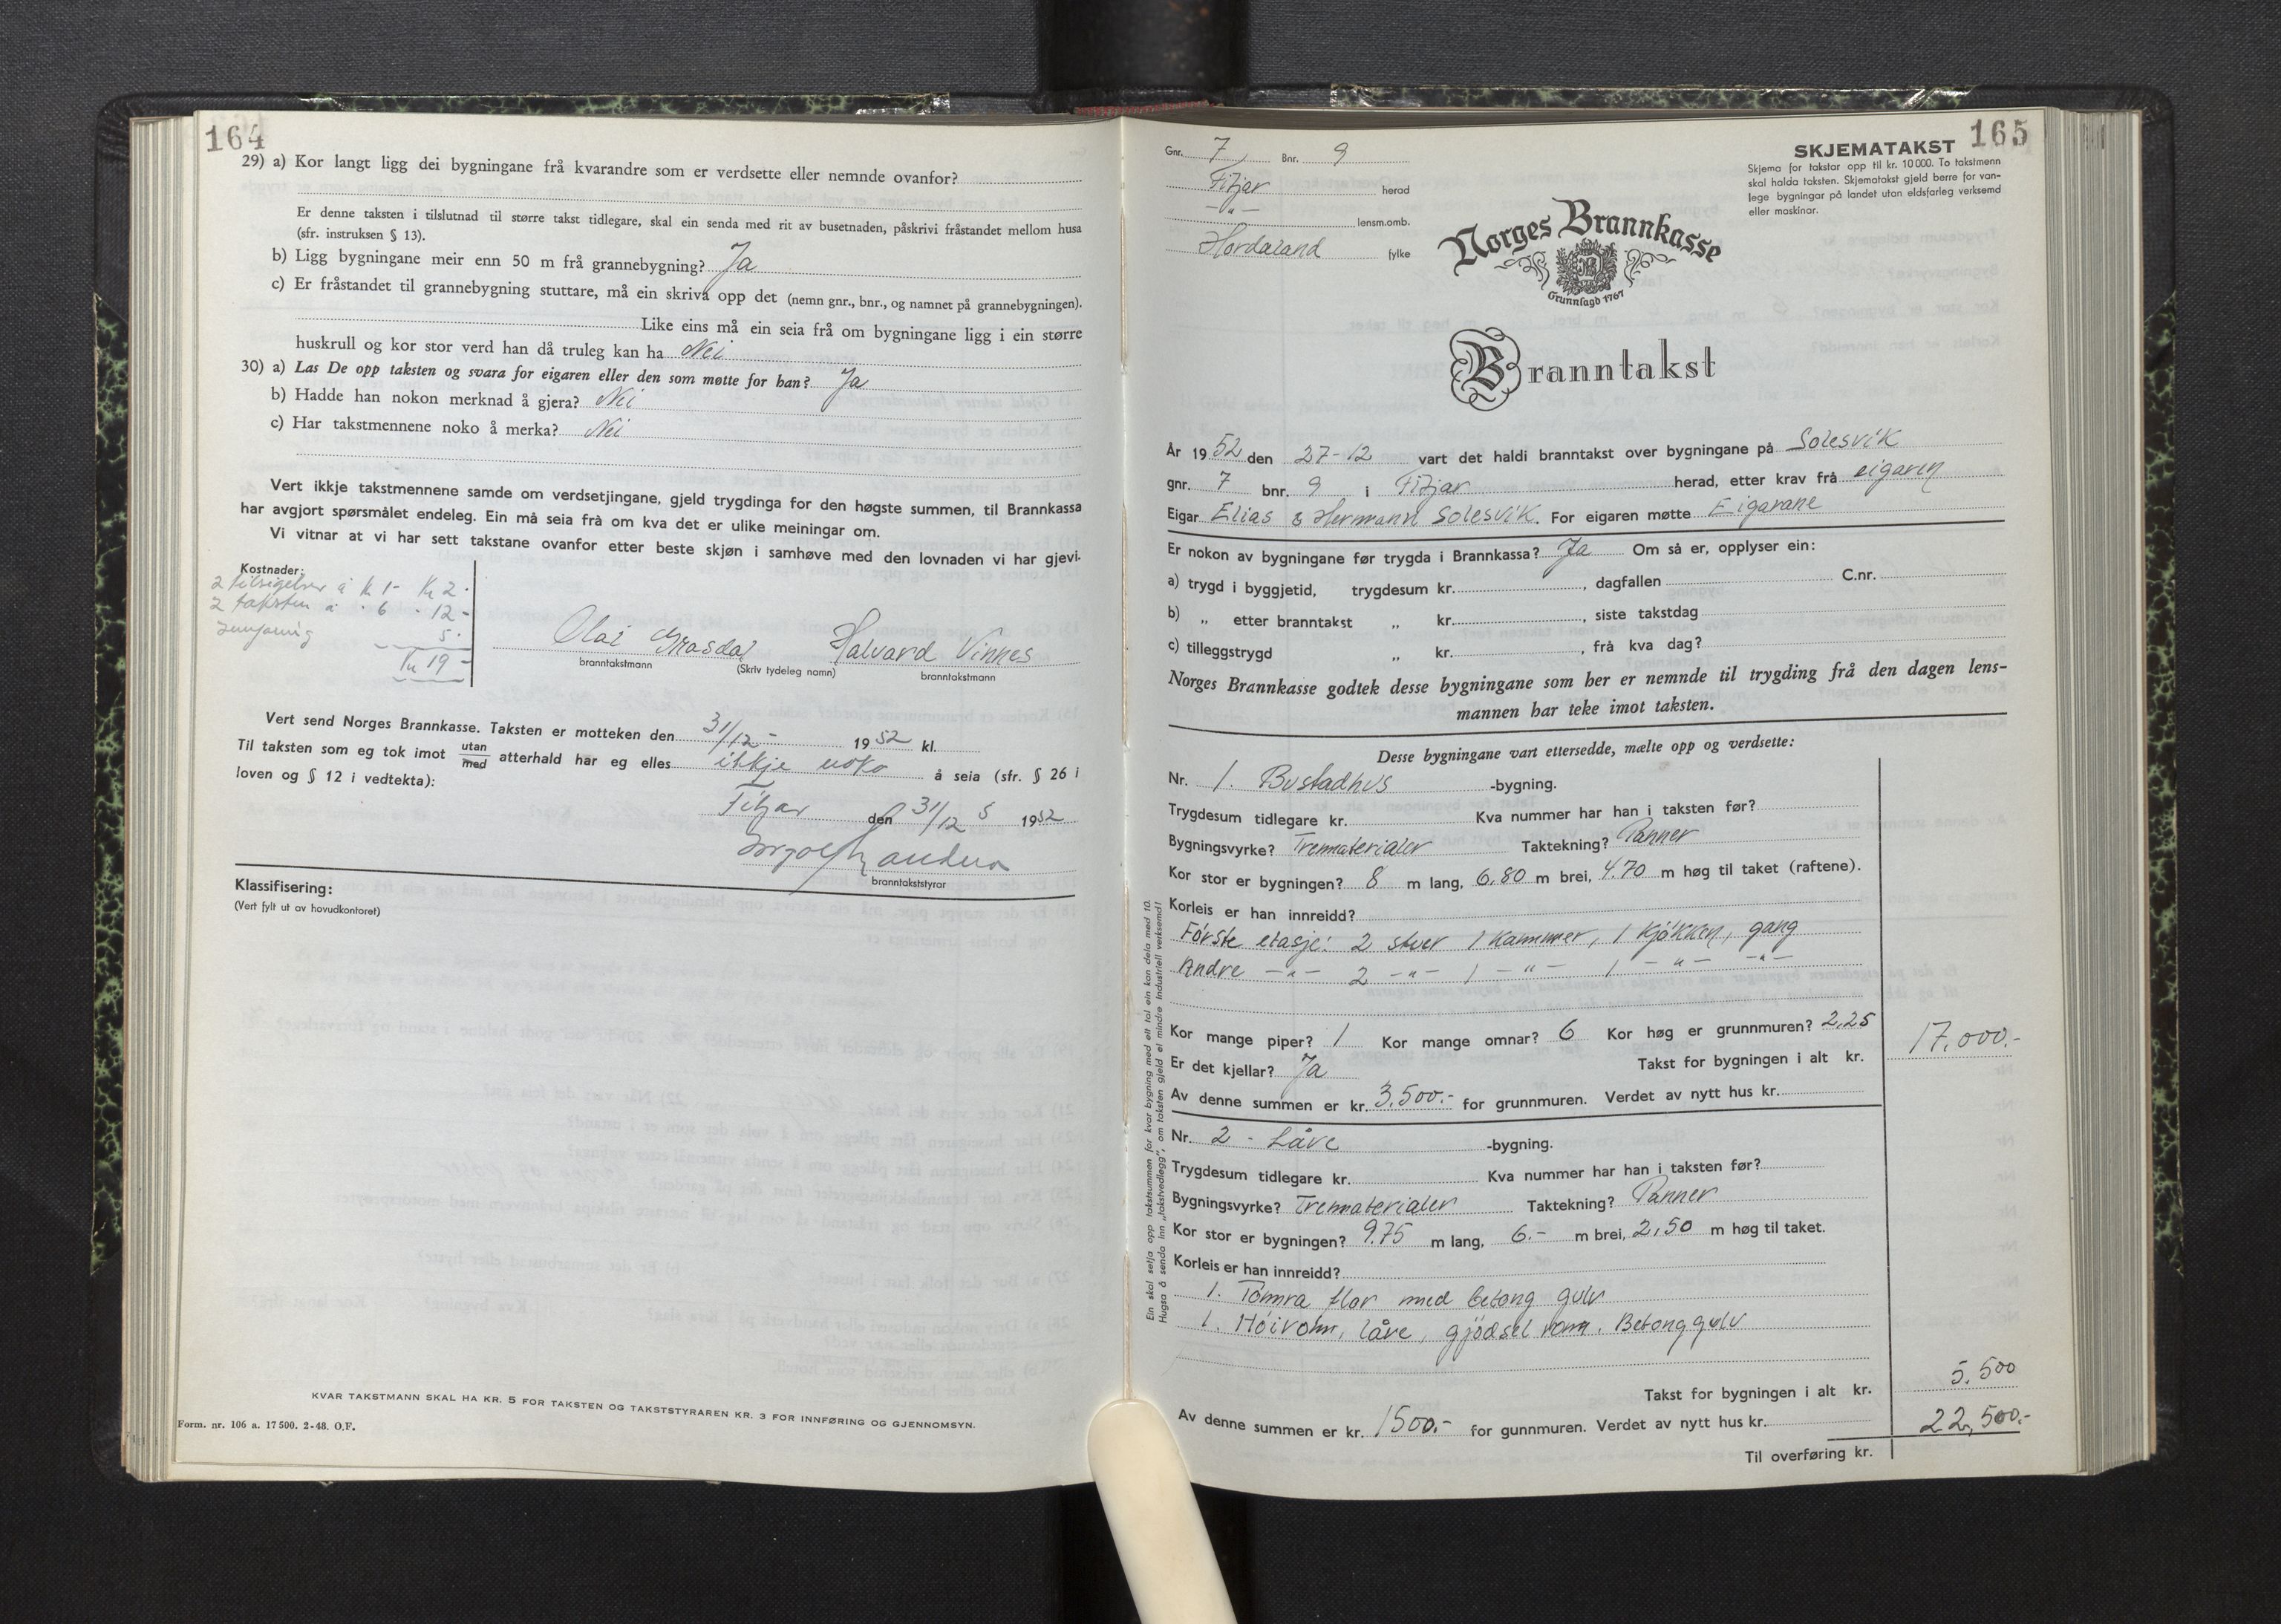 164
29) a) Kor langt ligg dei bygningane frå kvarandre som er verdsette eller nemnde ovanfor?
Er denne taksten i tilslutnad til større takst tidlegare, skal ein senda med rit av busetnaden, påskrivi fråstandet mellom husa
(sfr. instruksen § 13).
b) Ligg bygningane meir enn 50 m frå grannebygning? Ja
c) Er fråstandet til grannebygning stuttare, må ein skriva opp det (nemn gnr., bnr., og namnet på grannebygningen).
Like eins må ein seia frå om bygningane ligg i ein større
huskrull og kor stor verd han då truleg kan ha Nei
30) a) Las De opp taksten og svara for eigaren eller den som møtte for han? Ja
b) Hadde han nokon merknad å gjera? Nei
c) Har takstmennene noko å merka? Nei
Vert ikkje takstmennene samde om verdsetjingane, gjeld trygdinga for den høgste summen, til Brannkassa
har avgjort spørsmålet endeleg. Ein må seia frå om kva det er ulike meiningar om.
Vi vitnar at vi har sett takstane ovanfor etter beste skjøn i samhøve med den lovnaden vi har gjevi.
Kostnader:
2 tilsigelser à kr 1- Kr 2.
2 taksten à · 6 · 12-
5.
Kr 19-
Olai Grasdal Halvard Vinnes
branntakstmann (Skriv tydeleg namn) branntakstmann
Vert send Norges Brannkasse. Taksten er motteken den 31/12- 1952 kl.
Til taksten som eg tok imot utan/med atterhald har eg elles ikkje noko å seia (sfr. § 26 i
loven og § 12 i vedtekta):
Fitjar den 31/12 s 1952
branntakststyrar
Klassifisering:
(Vert fylt ut av hovudkontoret)
KVAR TAKSTMANN SKAL HA KR. 5 FOR TAKSTEN OG TAKSTSTYRAREN KR. 3 FOR INNFØRING OG GJENNOMSYN.
Form. nr. 106 a. 17500. 2-48. O.F.
165
Gnr. 7 Bnr. 9
Fitjar herad
-"- lensm.omb.
Hordaland fylke
SKJEMATAKST
Skjema for takstar opp til kr. 10000. To takstmenn
skal halda taksten. Skjematakst gjeld berre for van-
lege bygningar på landet utan eldsfarleg verksemd
eller maskinar.
Norges Brannkasse
Grunnlagd 1767
Branntakst
År 1952 den 27-12 vart det haldi branntakst over bygningane på Solesvik
gnr. 7 bnr. 9 i Fitjar herad, etter krav frå eigaren
Eigar Elias & Hermann Solesvik. For eigaren møtte Eigarane
Er nokon av bygningane før trygda i Brannkassa? Ja Om så er, opplyser ein:
a) trygd i byggjetid, trygdesum kr. , dagfallen C.nr.
b) „ etter branntakst „ kr. , siste takstdag
c) tilleggstrygd „ kr. , frå kva dag?
Norges Brannkasse godtek desse bygningane som her er nemnde til trygding frå den dagen lens-
mannen har teke imot taksten.
Desse bygningane vart ettersedde, mælte opp og verdsette:
Nr. 1. Bustadhus -bygning.
Trygdesum tidlegare kr. Kva nummer har han i taksten før?
Bygningsvyrke? Trematerialer Taktekning? Panner
Kor stor er bygningen? 8 m lang, 6.80 m brei, 4.70 m høg til taket (raftene).
Korleis er han innreidd?
Første etasje: 2 stuer 1 kammer, 1 kjøkken, gang
Andre -"- 2 -"- 1 -"- 1 -"- -"-
Kor mange piper? 1 Kor mange omnar? 6 Kor høg er grunnmuren? 2,25
Er det kjellar? Ja Takst for bygningen i alt kr. 17.000.-
Av denne summen er kr. 3.500.- for grunnmuren. Verdet av nytt hus kr.
Nr. 2 - Låve -bygning.
Trygdesum tidlegare kr. Kva nummer har han i taksten før?
Bygningsvyrke? Trematerialer Taktekning? Panner
Kor stor er bygningen? 9.75 m lang, 6.- m brei, 2,50 m høg til taket.
Korleis er han innreidd?
1. Tømra flor med betong gulv
1. Høirom, låve, gjødsel rom. Betonggulv
Takst for bygningen i alt kr. 5.500
Av denne summen er kr. 1500.- for gunnmuren. Verdet av nytt hus kr.
Til overføring kr. 22,500.-
Ein skal setja opp takstsummen for kvar bygning med eit tal ein kan dela med 10.
Hugsa å senda inn „takstvedlegg”, om taksten gjeld ei mindre industriell verksemd!